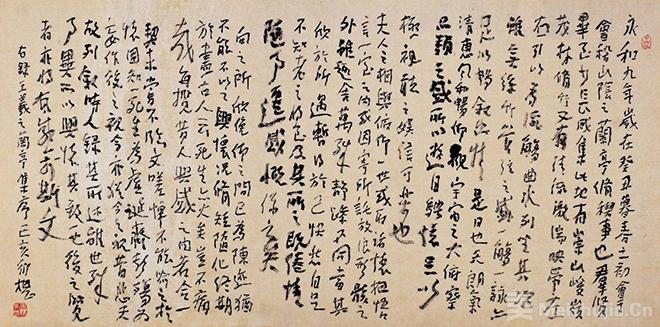 永和九年歲在癸丑暮春之初會于
會稽山陰之蘭亭脩稧事也群賢
畢至少長咸集此地有崇山峻嶺
茂林脩竹又有清流激湍映帶左
右引以為流觴曲水列坐其次
雖無絲竹管弦之盛一觴一詠亦
足以暢敘幽情是日也天朗氣
清惠風和暢仰觀宇宙之大俯察
品類之盛所以遊目騁懷足以
極視聽之娛信可樂也
夫人之相與俯仰一世或取諸懷抱悟
言一室之內或因寄所託放浪形骸之
外雖趣舍萬殊靜躁不同當其
欣於所遇暫得於己快然自足
不知老之將至及其所之既倦情
隨事遷感慨係之矣
向之所欣俛仰之間已為陳迹猶
不能不以之興懷況脩短隨化終期
於盡古人云死生亦大矣豈不痛
哉每攬昔人興感之由若合一
契未嘗不臨文嗟悼不能喻之於
懷固知一死生為虛誕齊彭殤為
妄作後之視今亦猶今之視昔悲夫
故列敘時人錄其所述雖世殊
事異所以興懷其致一也後之覽
者亦將有感於斯文
右錄王羲之蘭亭集序己亥